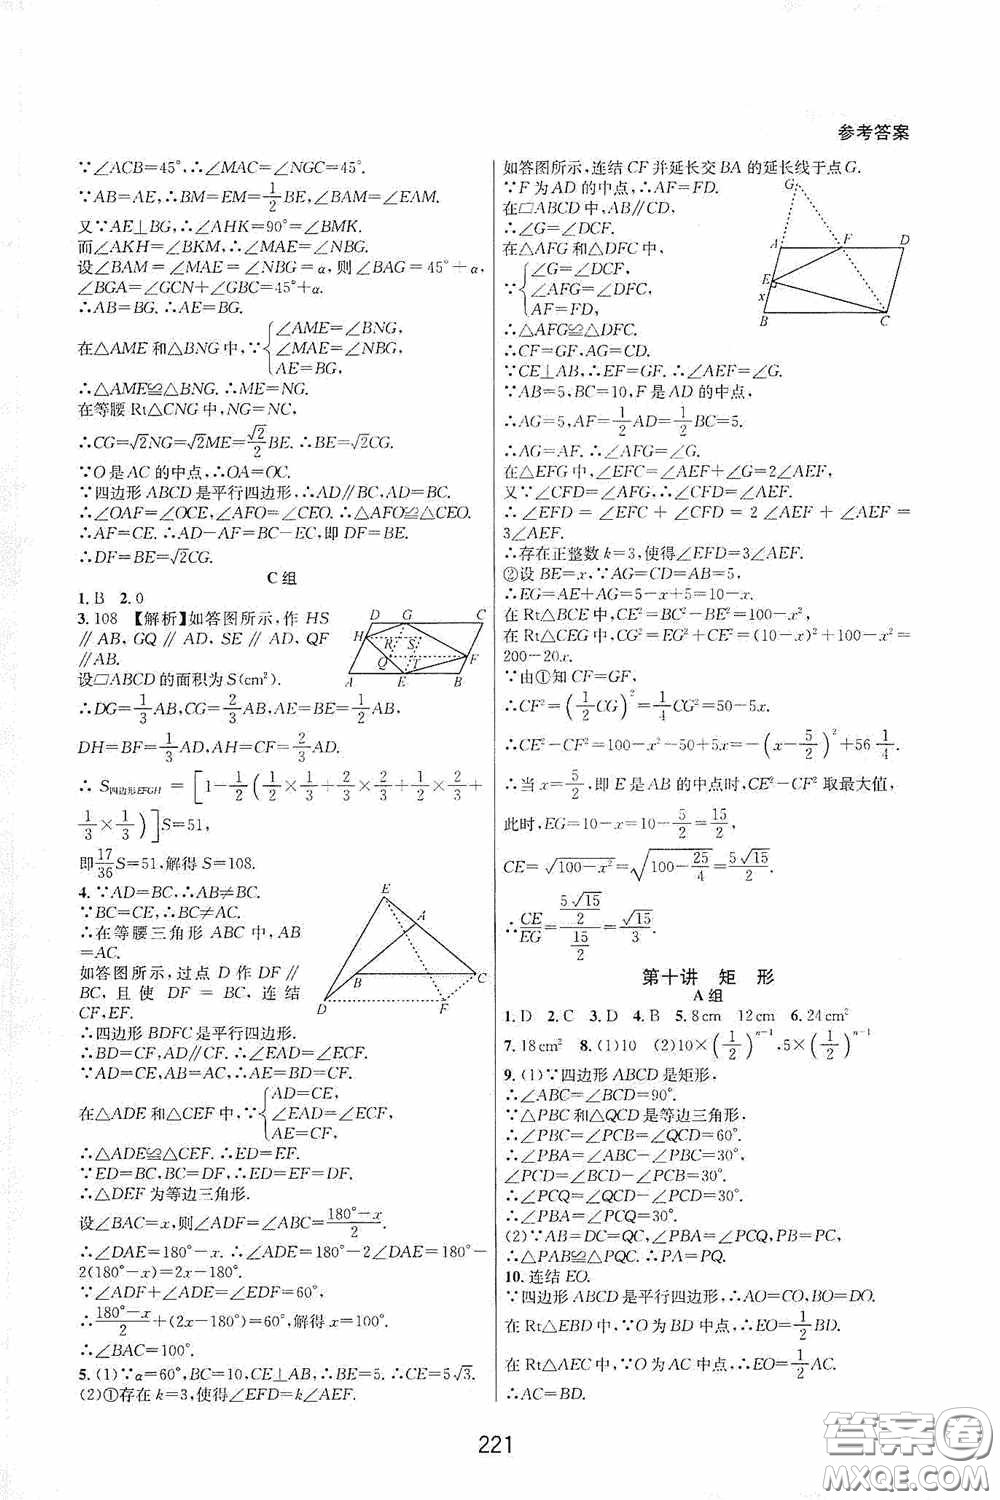 参考答案
∵∠ACB=45°,∴∠MAC=∠NGC=45°.
∵AB=AE,∴BM=EM=1/2BE,∠BAM=∠EAM.
又∵AE⊥BG,∴∠AHK=90°=∠BMK.
而∠AKH=∠BKM,∴∠MAE=∠NBG.
设∠BAM=∠MAE=∠NBG=α,则∠BAG=45°+α,
∠BGA=∠GCN+∠GBC=45°+α.
∴AB=BG.∴AE=BG.
在△AME和△BNG中,∵{∠AME=∠BNG,
∠MAE=∠NBG,
AE=BG,
∴△AME≌△BNG.∴ME=NG.
在等腰Rt△CNG中,NG=NC,
∴CG=√2NG=√2ME=√2/2BE.∴BE=√2CG.
∵O是AC的中点,∴OA=OC.
∵四边形ABCD是平行四边形,∴AD∥BC,AD=BC.
∴∠OAF=∠OCE,∠AFO=∠CEO.∴△AFO≌△CEO.
∴AF=CE.∴AD-AF=BC-EC,即DF=BE.
∴DF=BE=√2CG.
C组
1.B 2.0
3.108 【解析】如答图所示,作HS
∥AB,GQ∥AD,SE∥AD,QF
∥AB.
设□ABCD的面积为S(cm²).
D G C
H R S
Q T F
A E B
∴DG=1/3AB,CG=2/3AB,AE=BE=1/2AB,
DH=BF=1/3AD,AH=CF=2/3AD.
∴S四边形EFGH=[1-1/2(1/2×1/3+1/2×2/3+2/3×2/3+
1/3×1/3)]S=51,
即17/36S=51,解得S=108.
4.∵AD=BC,∴AB≠BC.
∵BC=CE,∴BC≠AC.
∴在等腰三角形ABC中,AB
=AC.
如答图所示,过点D作DF∥
BC,且使DF=BC,连结
CF,EF.
E
A
B C
D F
∴四边形BDFC是平行四边形.
∴BD=CF,AD∥CF.∴∠EAD=∠ECF.
∵AD=CE,AB=AC,∴AE=BD=CF.
在△ADE和△CEF中,∵{AD=CE,
∠EAD=∠ECF,
AE=CF,
∴△ADE≌△CEF.∴ED=EF.
∵ED=BC,BC=DF,∴ED=EF=DF.
∴△DEF为等边三角形.
设∠BAC=x,则∠ADF=∠ABC=180°-x/2.
∴∠DAE=180°-x.∴∠ADE=180°-2∠DAE=180°-
2(180°-x)=2x-180°.
∵∠ADF+∠ADE=∠EDF=60°,
∴180°-x/2+(2x-180°)=60°,解得x=100°.
∴∠BAC=100°.
5.(1)∵α=60°,BC=10,CE⊥AB,∴BE=5.∴CE=5√3.
(2)①存在k=3,使得∠EFD=k∠AEF.
如答图所示,连结CF并延长交BA的延长线于点G.
∵F为AD的中点,∴AF=FD.
在□ABCD中,AB∥CD,
∴∠G=∠DCF.
在△AFG和△DFC中,
∵{∠G=∠DCF,
∠AFG=∠DFC,
AF=FD,
G
A F D
E
x
B C
∴△AFG≌△DFC.
∴CF=GF,AG=CD.
∵CE⊥AB,∴EF=GF.∴∠AEF=∠G.
∵AB=5,BC=10,F是AD的中点,
∴AG=5,AF=1/2AD=1/2BC=5.
∴AG=AF.∴∠AFG=∠G.
在△EFG中,∠EFC=∠AEF+∠G=2∠AEF,
又∵∠CFD=∠AFG,∴∠CFD=∠AEF.
∴∠EFD=∠EFC+∠CFD=2∠AEF+∠AEF=
3∠AEF.
∴存在正整数k=3,使得∠EFD=3∠AEF.
②设BE=x,∵AG=CD=AB=5,
∴EG=AE+AG=5-x+5=10-x.
在Rt△BCE中,CE²=BC²-BE²=100-x².
在Rt△CEG中,CG²=EG²+CE²=(10-x)²+100-x²=
200-20x.
∵由①知CF=GF,
∴CF²=(1/2CG)²=1/4CG²=50-5x.
∴CE²-CF²=100-x²-50+5x=-(x-5/2)²+56 1/4.
∴当x=5/2,即E是AB的中点时,CE²-CF²取最大值,
此时,EG=10-x=10-5/2=15/2,
CE=√100-x²=√100-25/4=5√15/2.
∴CE/EG=5√15/2/15/2=√15/3.
第十讲 矩 形
A组
1.D 2.C 3.D 4.B 5.8cm 12cm 6.24cm²
7.18cm² 8.(1)10 (2)10×(1/2)ⁿ⁻¹,5×(1/2)ⁿ⁻¹
9.(1)∵四边形ABCD是矩形,
∴∠ABC=∠BCD=90°.
∵△PBC和△QCD是等边三角形,
∴∠PBC=∠PCB=∠QCD=60°.
∴∠PBA=∠ABC-∠PBC=30°,
∠PCD=∠BCD-∠PCB=30°.
∴∠PCQ=∠QCD-∠PCD=30°.
∴∠PBA=∠PCQ=30°.
(2)∵AB=DC=QC,∠PBA=∠PCQ,PB=PC,
∴△PAB≌△PQC.∴PA=PQ.
10.连结EO.
∵四边形ABCD是平行四边形,∴AO=CO,BO=DO.
在Rt△EBD中,∵O为BD中点,∴EO=1/2BD.
在Rt△AEC中,∵O为AC中点,∴EO=1/2AC.
∴AC=BD.
221
答案圈
MXQE.COM